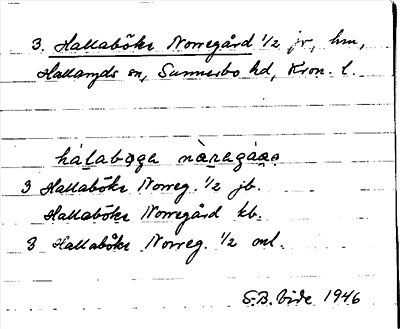 3. Hallaböke Norregård 1/2 jr, hm,
Hallaryds sn, Sunnerbo hd, Kron. l.
hálaboga nàragáao
3 Hallaböke Norreg. 1/2 jb.
Hallaböke Norregård kb.
3 Hallaböke Norreg. 1/2 ml.
S.B. Vide 1946